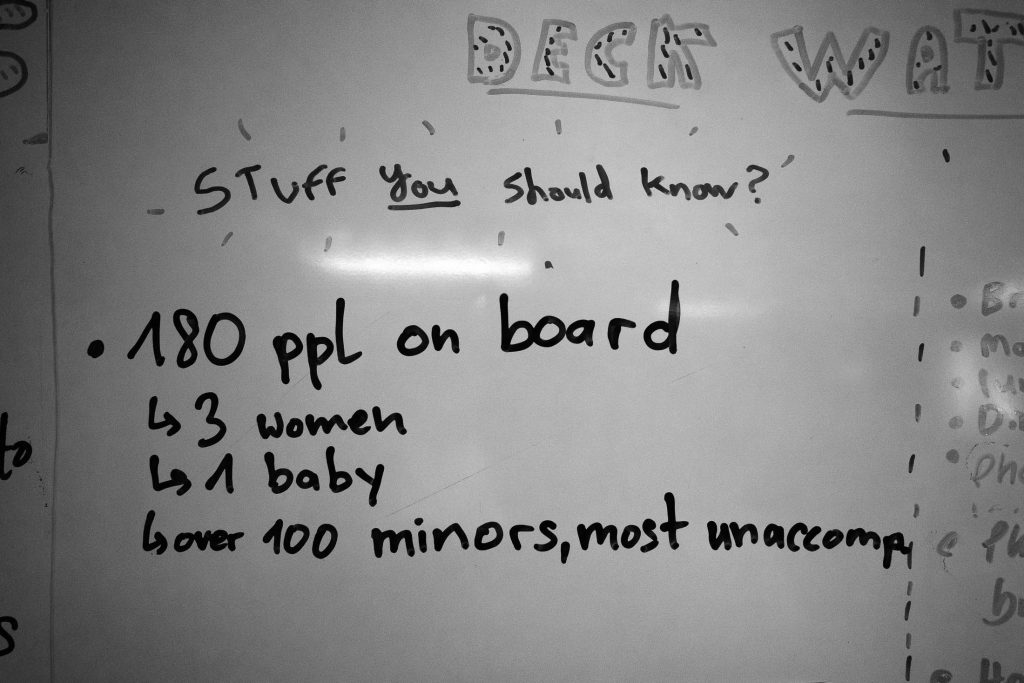 DECK WAT
STUFF you should know?
• 180 ppl on board
↳ 3 women
↳ 1 baby
↳ over 100 minors, most unaccomp
to
s